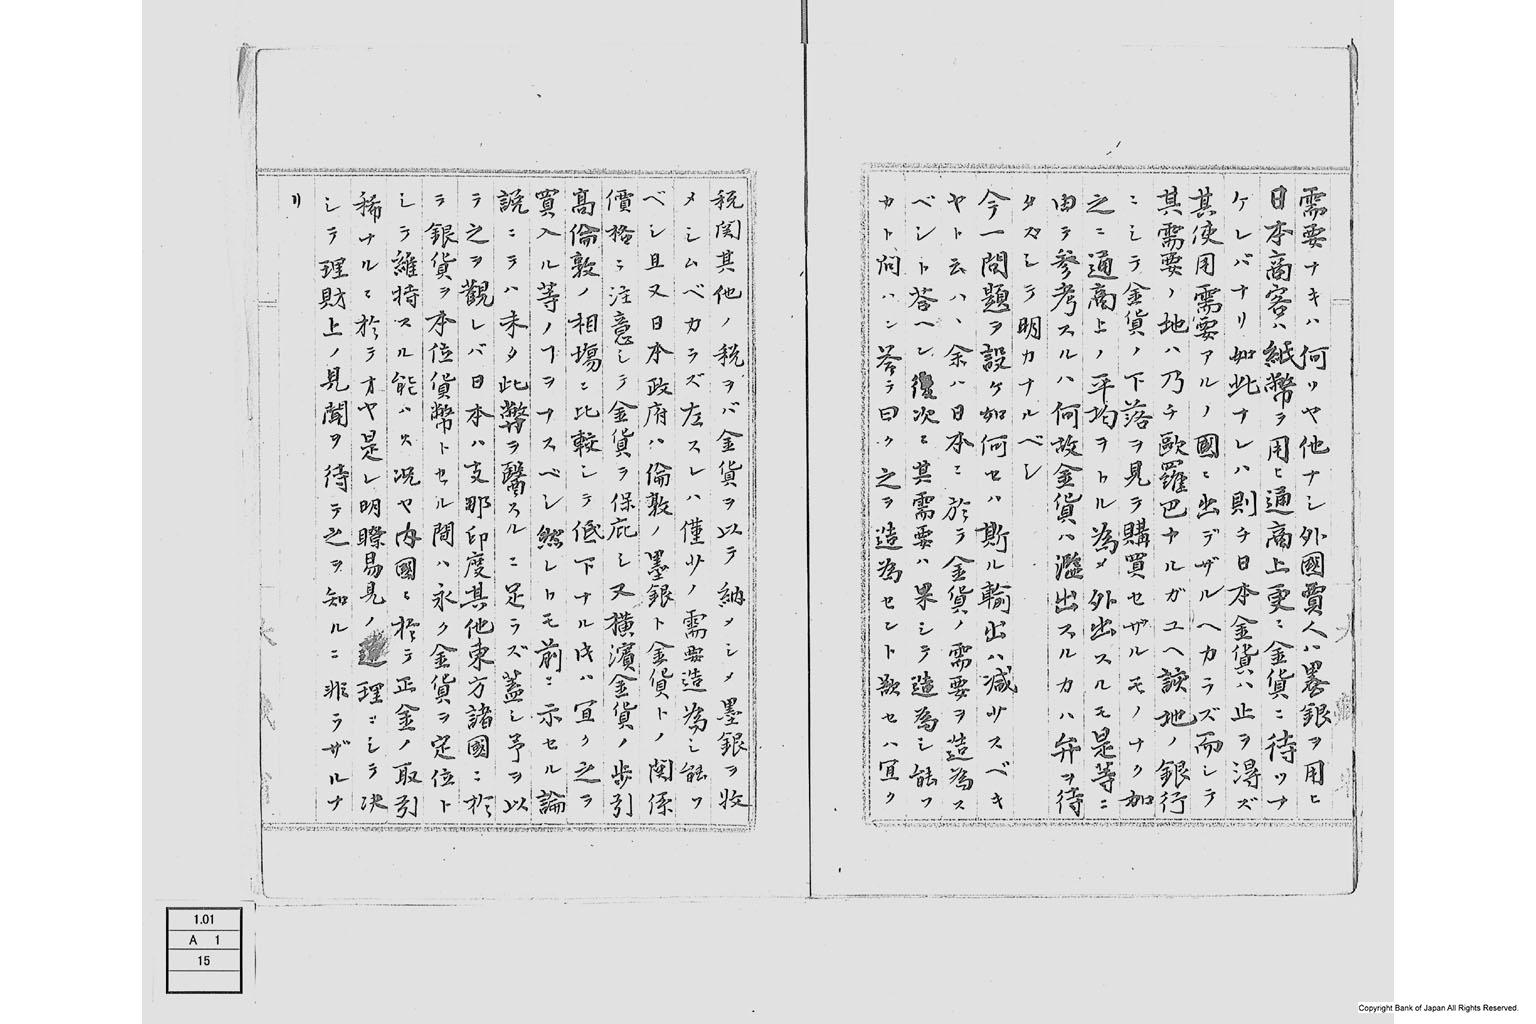 需要ナキハ何ソヤ他ナシ外國賈人ハ墨銀ヲ用ヒ
日本商客ハ紙幣ヲ用ヒ通商上更ニ金貨ニ待ツナ
ケレバナリ如此ナレハ則チ日本金貨ハ止ヲ得ズ
其使用需要アルノ國ニ出デザルヘカラズ而シテ
其需要ノ地ハ乃チ歐羅巴ナルガユヘ該地ノ銀行
ニシテ金貨ノ下落ヲ見テ購買セザルモノナク加
之ニ通商上ノ平均ヲトル為メ外出スルモ是等ニ
由テ参考スルハ何故金貨ハ濫出スルカハ弁ヲ待
タズシテ明カナルベシ
今一問題ヲ設ケ如何セハ斯ル輸出ハ減少スベキ
ヤト云ハヽ余ハ日本ニ於テ金貨ノ需要ヲ造為ス
ベシト答ヘン復次ニ其需要ハ果シテ造為シ能フ
カト問ハン答テ曰ク之ヲ造為セント欲セハ宜ク
税関其他ノ税ヲバ金貨ヲ以テ納メシメ墨銀ヲ收
メシムベカラズ左スレハ僅少ノ需要造為シ能フ
ベシ且又日本政府ハ倫敦ノ墨銀ト金貨トノ関係
價格ニ注意シテ金貨ヲ保庇シ又横濱金貨ノ歩引
髙倫敦ノ相塲ニ比較シテ低下ナル片ハ宜ク之ヲ
買入ル等ノヿヲナスベシ然レトモ前ニ示セル論
説ニテハ未タ此幣ヲ醫スルニ足ラズ蓋シ予ヲ以
テ之ヲ觀レバ日本ハ支那印度其他東方諸國ニ於
テ銀貨ヲ本位貨幣トセル間ハ永ク金貨ヲ定位ト
シテ維持スル能ハス况ヤ内國ニ於テ正金ノ取引
稀ナルニ於テオヤ是レ明瞭易見ノ道理ニシテ决
シテ理財上ノ見聞ヲ待テ之ヲ知ルニ非ラザルナ
リ
1.01
A 1
15
Copyright Bank of Japan All Rights Reserved.